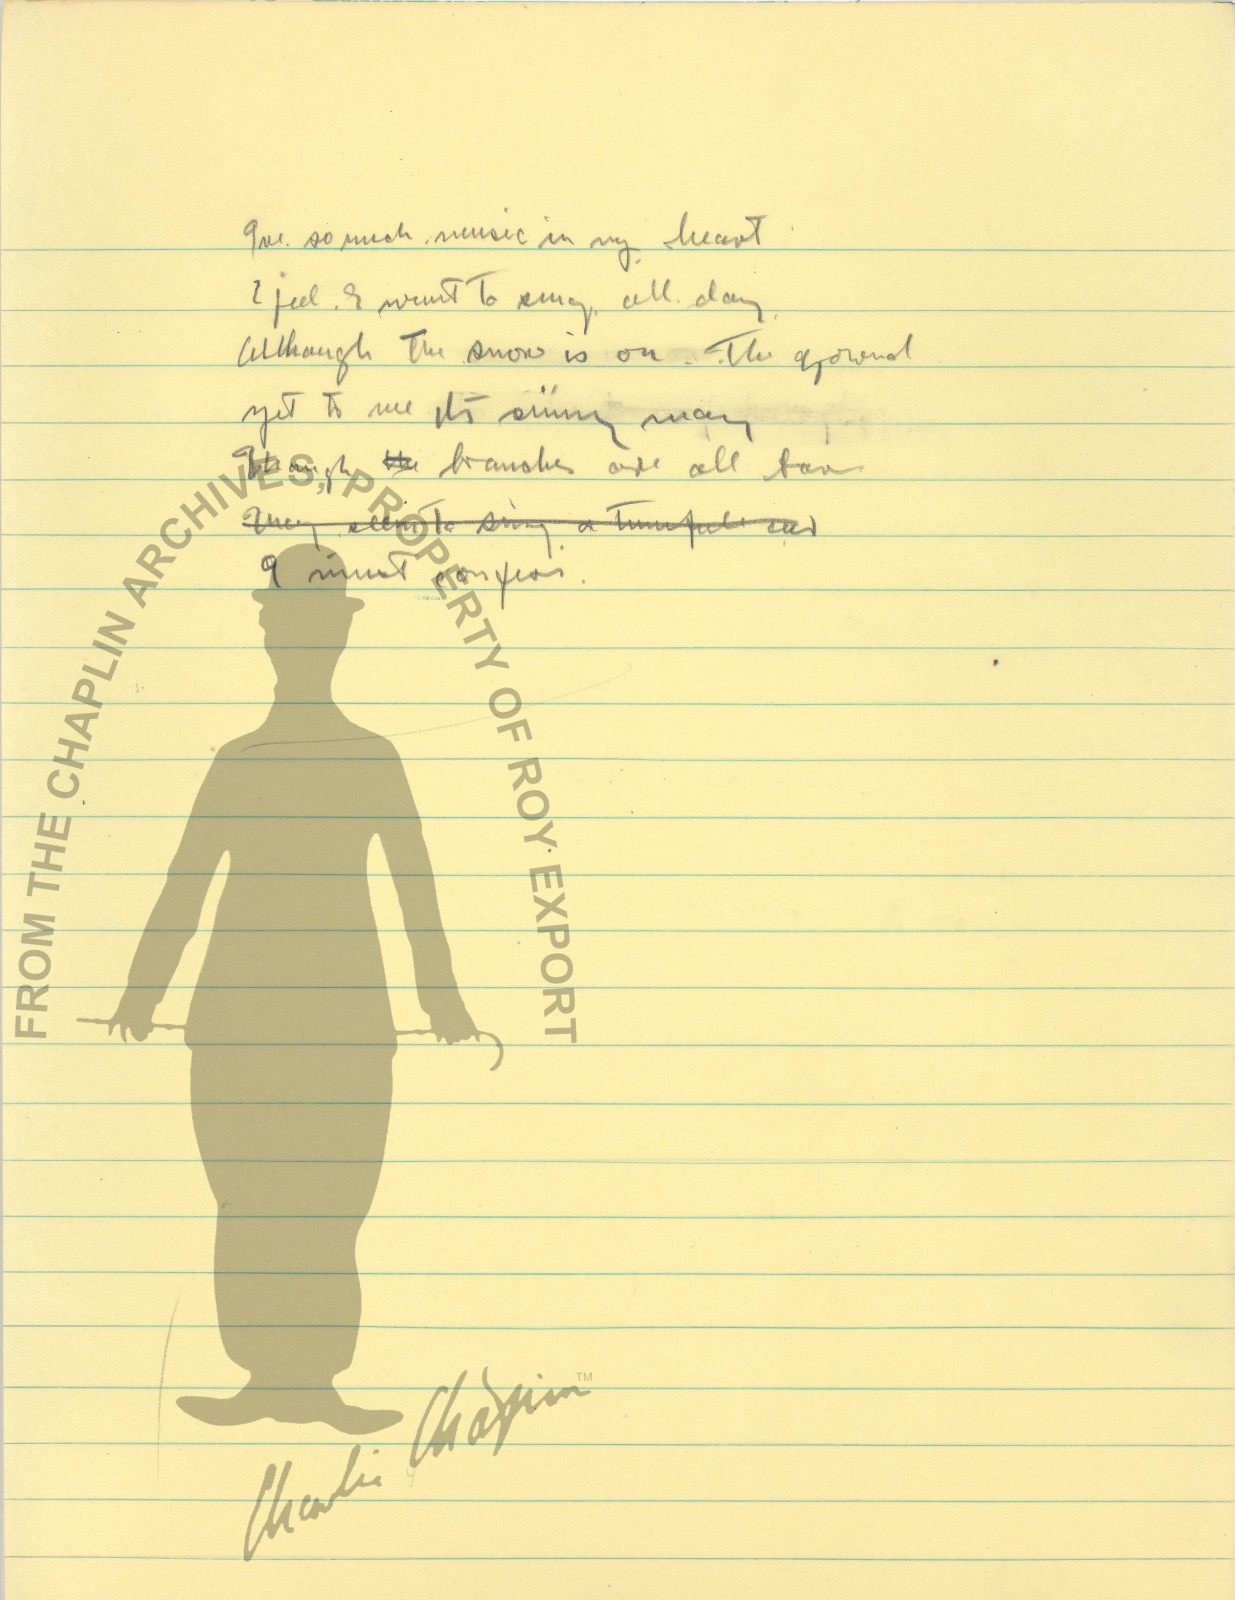 Ive so much music in my heart
I feel I want to sing all day
Although the snow is on the ground
yet to me its sunny may
Though the branches are all bare
They seem to sing a tuneful air
I must confess.
FROM THE CHAPLIN ARCHIVES, PROPERTY OF ROY EXPORT
Charlie Chaplin™